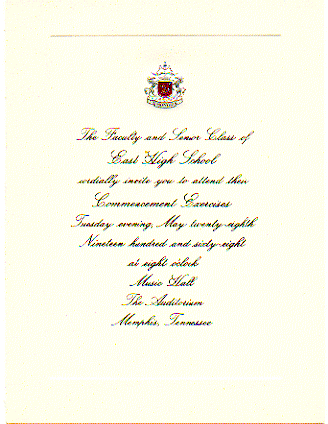 The Faculty and Senior Class of
East High School
cordially invite you to attend their
Commencement Exercises
Tuesday evening, May twenty-eighth
Nineteen hundred and sixty-eight
at eight o'clock
Music Hall
The Auditorium
Memphis, Tennessee